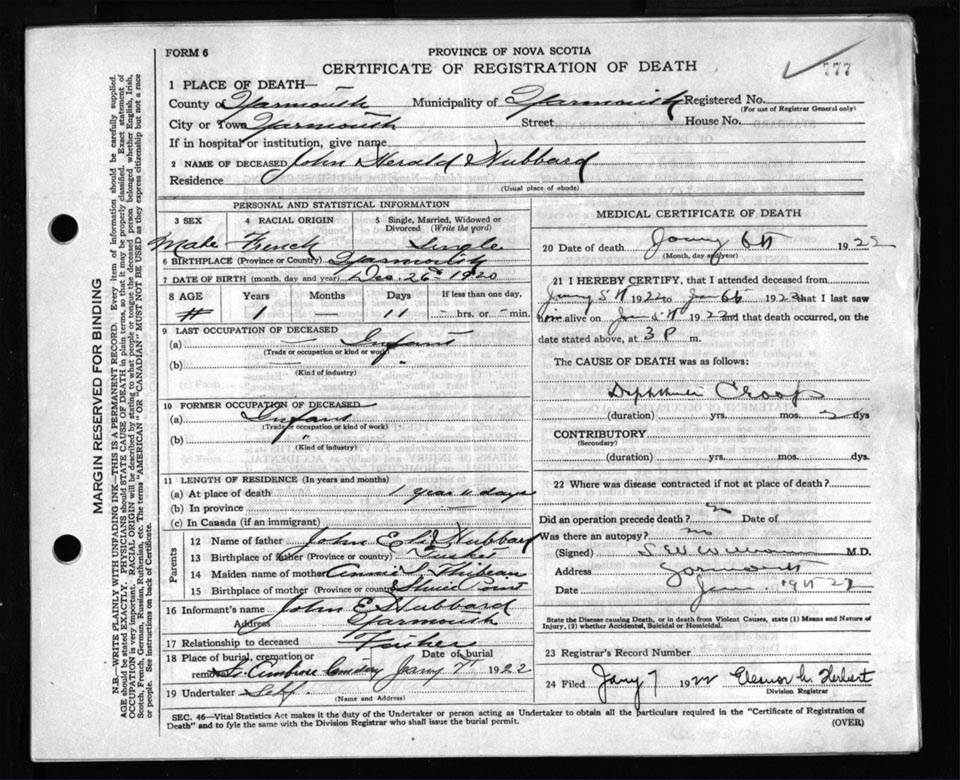 FORM 6
PROVINCE OF NOVA SCOTIA
CERTIFICATE OF REGISTRATION OF DEATH
777
1 PLACE OF DEATH—
County of Yarmouth Municipality of Yarmouth Registered No.
(For use of Registrar General only)
City or Town Yarmouth Street House No.
If in hospital or institution, give name
2 NAME OF DECEASED John Herald Hubbard
Residence
(Usual place of abode)
PERSONAL AND STATISTICAL INFORMATION
3 SEX 4 RACIAL ORIGIN 5 Single, Married, Widowed or Divorced (Write the word)
Male French Single
6 BIRTHPLACE (Province or County) Yarmouth
7 DATE OF BIRTH (month, day and year) Dec. 26th 1920
8 AGE Years Months Days If less than one day,
# 1 — 11 - hrs. or - min.
9 LAST OCCUPATION OF DECEASED
(a) — Infant
(Trade or occupation or kind of work)
(b) "
(Kind of industry)
10 FORMER OCCUPATION OF DECEASED
(a) Infant
(Trade or occupation or kind of work)
(b) "
(Kind of industry)
11 LENGTH OF RESIDENCE (In years and months)
(a) At place of death 1 year 11 days
(b) In province —
(c) In Canada (if an immigrant)
Parents
12 Name of father John Eli Hubbard
13 Birthplace of father (Province or country) Tusket
14 Maiden name of mother Annie S. Thibeau
15 Birthplace of mother (Province or country) Point
16 Informant's name John E Hubbard
Address Yarmouth
17 Relationship to deceased Father
18 Place of burial, cremation or Date of burial
removal St. Ambrose Cemetery Jany 7th 1922
19 Undertaker Self
(Name and Address)
MEDICAL CERTIFICATE OF DEATH
20 Date of death Jany 6th 1922
(Month, day and year)
21 I HEREBY CERTIFY, that I attended deceased from
Jany 5th 1922 to Jan 6th 1922 that I last saw
him alive on Jan 1922 and that death occurred, on
date stated above, at 3 P m.
The CAUSE OF DEATH was as follows:
Croup
(duration) yrs. mos. 2 dys
CONTRIBUTORY
(Secondary)
(duration) yrs. mos. dys
22 Where was disease contracted if not at place of death?
Did an operation precede death? no Date of
Was there an autopsy? no
(Signed) M.D.
Address Yarmouth
Date Jan 1922
State the Disease causing Death, or in death from Violent Causes, state (1) Means and Nature of
Injury, (2) whether Accidental, Suicidal or Homicidal.
23 Registrar's Record Number
24 Filed Jany 7 1922 Eleanor G. Herbert
Division Registrar
SEC. 46—Vital Statistics Act makes it the duty of the Undertaker or person acting as Undertaker to obtain all the particulars required in the "Certificate of Registration of
Death" and to fyle the same with the Division Registrar who shall issue the burial permit.
(OVER)
MARGIN RESERVED FOR BINDING
N.B.—WRITE PLAINLY WITH UNFADING INK—THIS IS A PERMANENT RECORD. Every item of information should be carefully supplied.
AGE should be stated EXACTLY. PHYSICIANS should STATE CAUSE OF DEATH in plain terms, so that it may be properly classified. Exact statement of
OCCUPATION is very important. RACIAL ORIGIN will be described by stating to what people or tongue the deceased person belonged, whether English, Irish,
Scotch, French, German, Russian, Ruthenian, etc. The terms "AMERICAN" OR "CANADIAN" MUST NOT BE USED as they express citizenship but not a race
or people. See instructions on back of Certificate.